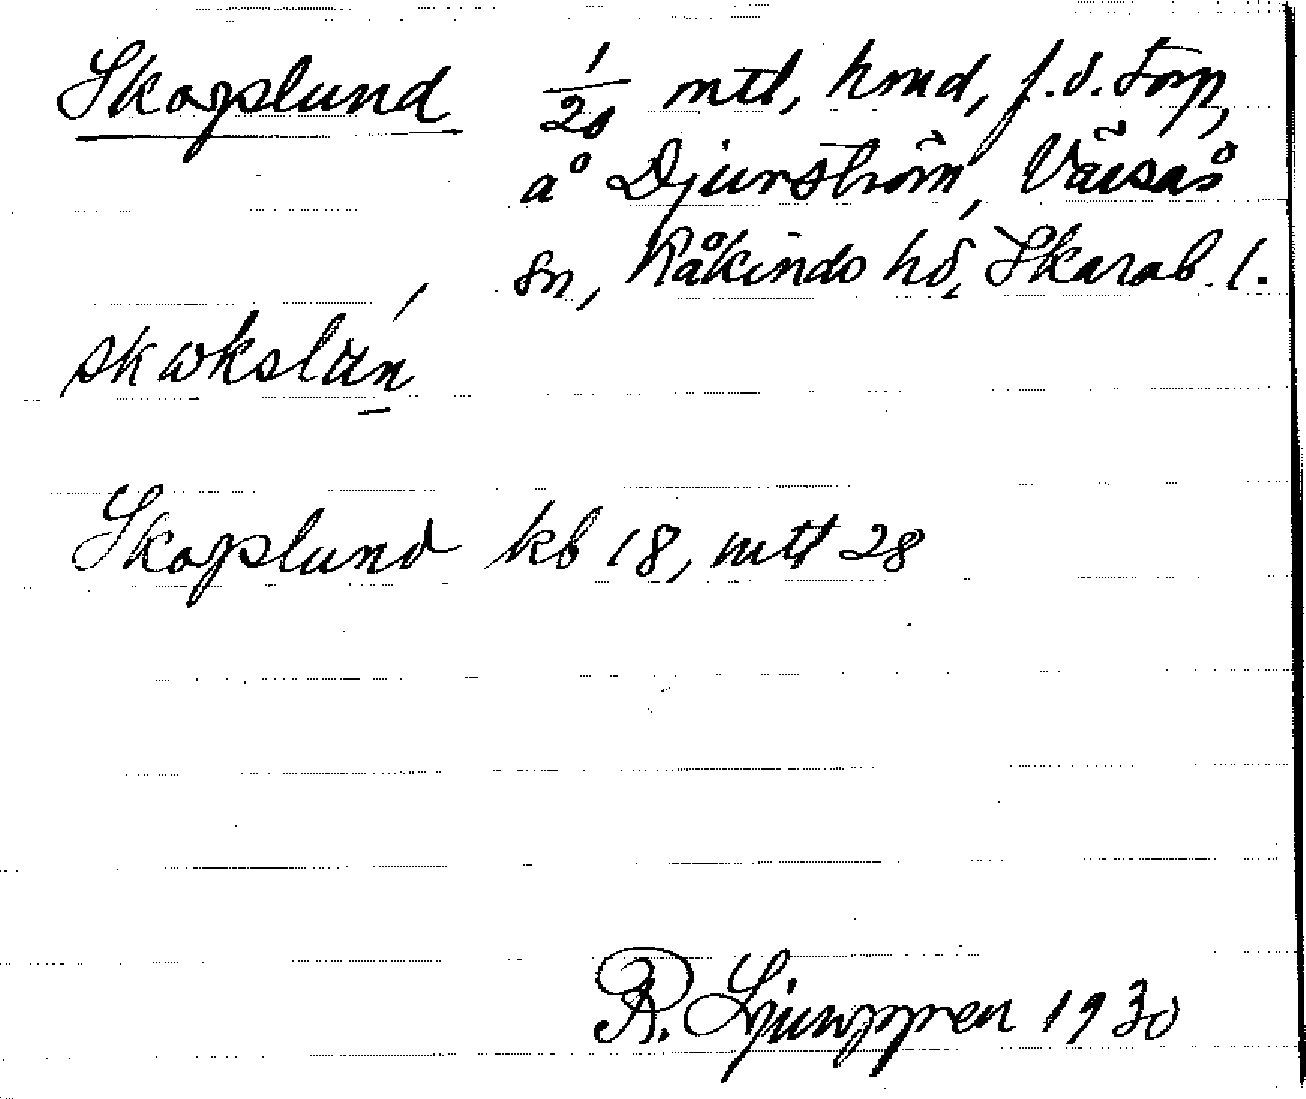 Skogslund 1/20 mtl, hmd, f.d. torp,
å Djurström, Väsås
sn, Kåkinds hd, Skarab. l.
skωkslun̲
Skogslund kb 18, mtl 28
R. Ljunggren 1930